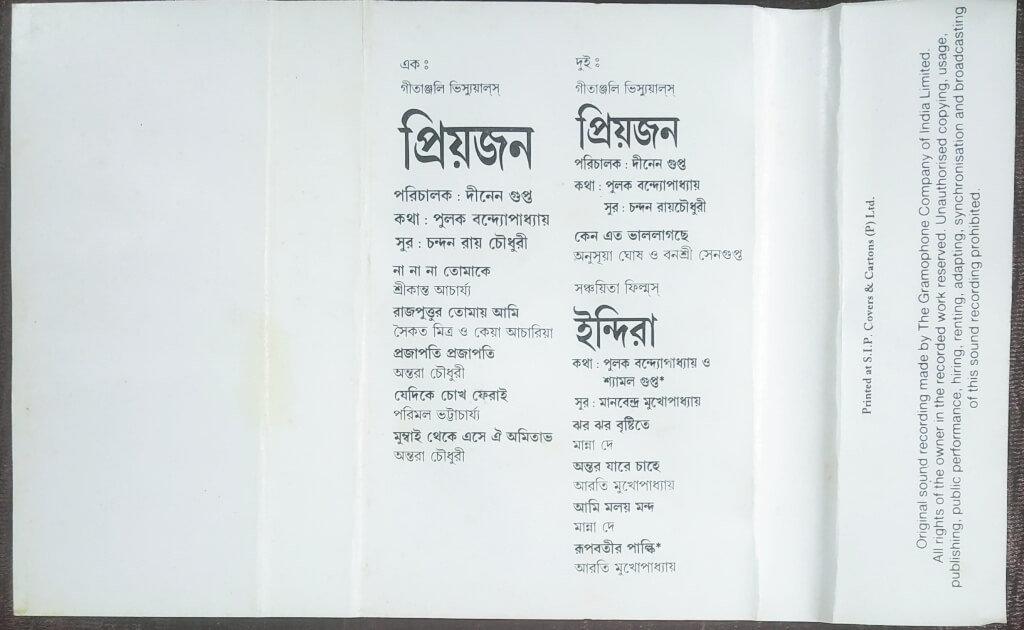 এক :
গীতাঞ্জলি ভিস্যুয়ালস্
প্রিয়জন
পরিচালক : দীনেন গুপ্ত
কথা : পুলক বন্দ্যোপাধ্যায়
সুর : চন্দন রায় চৌধুরী
না না না তোমাকে
শ্রীকান্ত আচার্য্য
রাজপুত্তুর তোমায় আমি
সৈকত মিত্র ও কেয়া আচারিয়া
প্রজাপতি প্রজাপতি
অন্তরা চৌধুরী
যেদিকে চোখ ফেরাই
পরিমল ভট্টাচার্য্য
মুম্বাই থেকে এসে ঐ অমিতাভ
অন্তরা চৌধুরী
দুই :
গীতাঞ্জলি ভিস্যুয়ালস্
প্রিয়জন
পরিচালক : দীনেন গুপ্ত
কথা : পুলক বন্দ্যোপাধ্যায়
সুর : চন্দন রায়চৌধুরী
কেন এত ভাললাগছে
অনুসূয়া ঘোষ ও বনশ্রী সেনগুপ্ত
সঞ্চয়িতা ফিল্মস্
ইন্দিরা
কথা : পুলক বন্দ্যোপাধ্যায় ও
শ্যামল গুপ্ত*
সুর : মানবেন্দ্র মুখোপাধ্যায়
ঝর ঝর বৃষ্টিতে
মান্না দে
অন্তর যারে চাহে
আরতি মুখোপাধ্যায়
আমি মলয় মন্দ
মান্না দে
রূপবতীর পাল্কি*
আরতি মুখোপাধ্যায়
Printed at S.I.P. Covers & Cartons (P) Ltd.
Original sound recording made by The Gramophone Company of India Limited.
All rights of the owner in the recorded work reserved. Unauthorised copying, usage,
publishing, public performance, hiring, renting, adapting, synchronisation and broadcasting
of this sound recording prohibited.